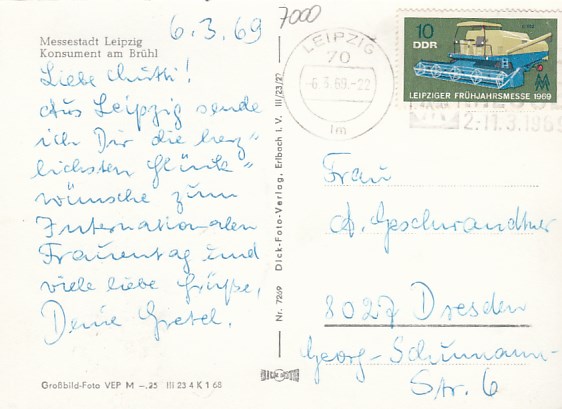 6.3.69
7000
Messestadt Leipzig
Konsument am Brühl
Liebe Mutti!
Aus Leipzig sende
ich Dir die herz=
lichsten Glück=
wünsche zum
Internationalen
Frauentag und
viele liebe Grüße,
Deine Gretel.
Großbild-Foto VEP M –.25 III 23 4 K 1 68
Nr. 7269 Dick-Foto-Verlag, Erlbach i. V. III/23/27
LEIPZIG
70
-6.3.69.-22
lm
2.-11.3.1969
10
DDR
LEIPZIGER FRÜHJAHRSMESSE 1969
Frau
A. Geschwandtner
8027 Dresden
Georg-Schumann-
Str. 6